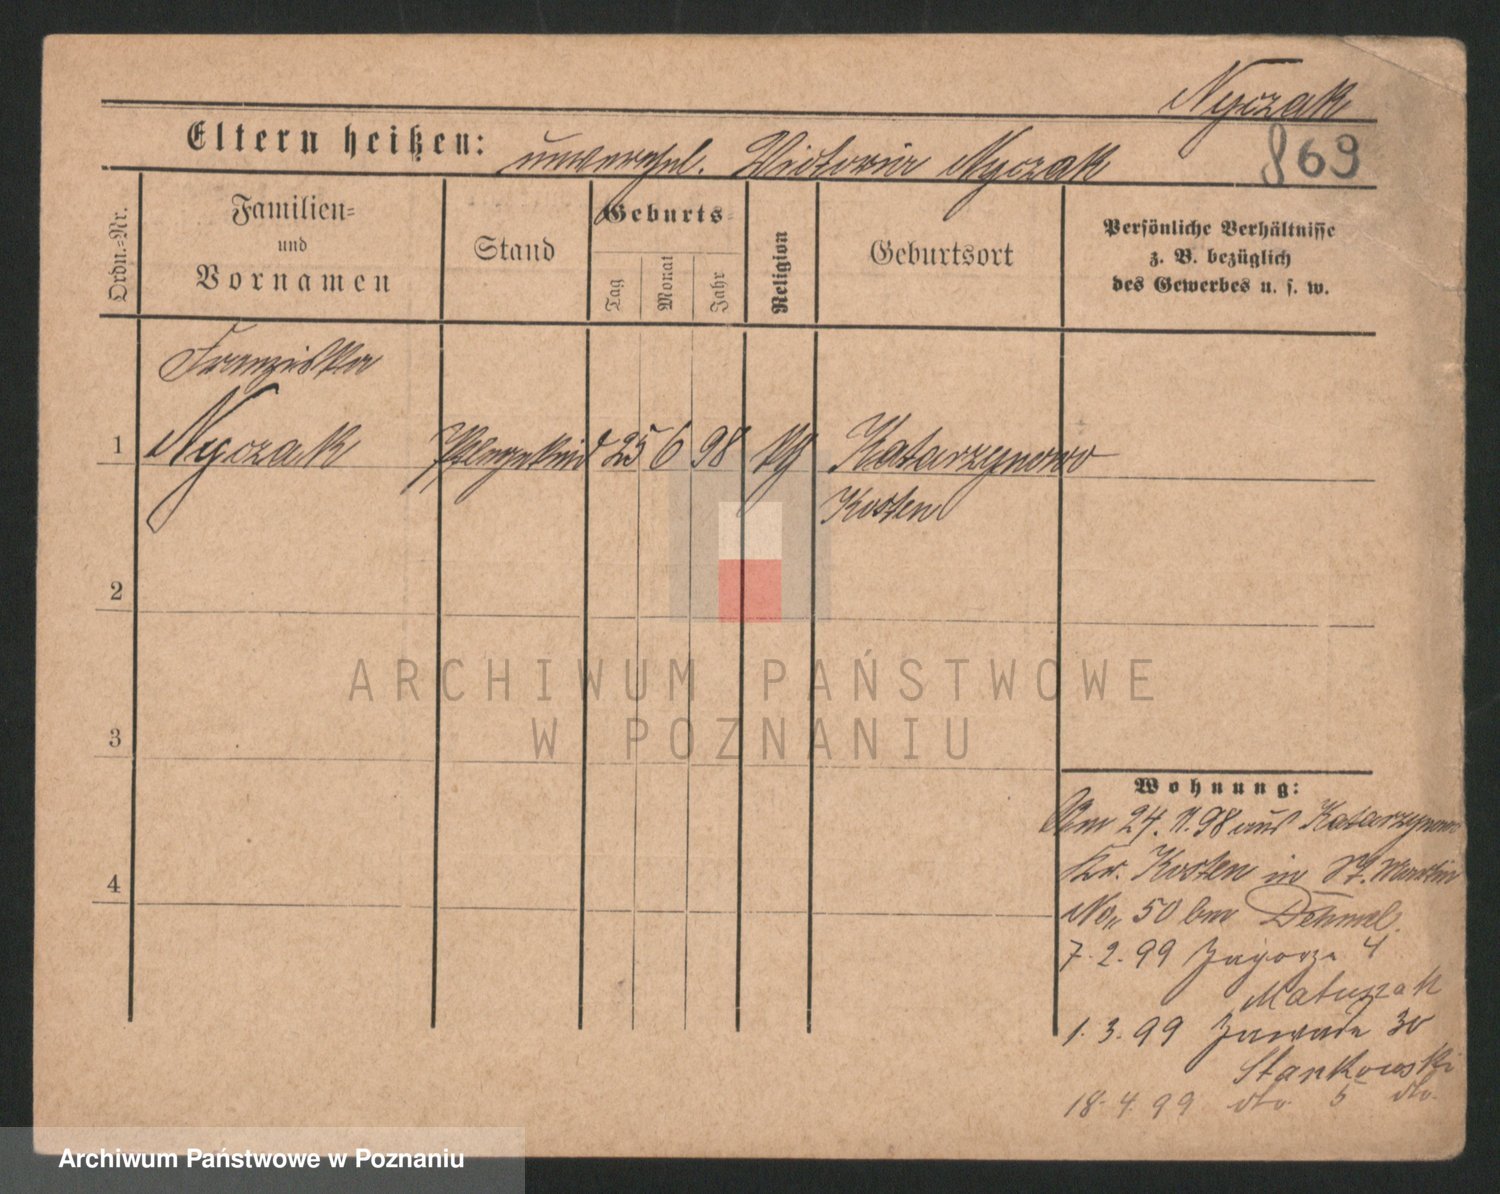 Nyczak
869
Eltern heißen: unverehel. Victoria Nyczak
Ordn.=Nr.
Familien=
und
Vornamen
Stand
Geburts=
Tag
Monat
Jahr
Religion
Geburtsort
Persönliche Verhältnisse
z. B. bezüglich
des Gewerbes u. s. w.
Franziska
1 Nyczak Pflegekind 25 6 98 kg Katarzynowo
Kosten
2
ARCHIWUM PAŃSTWOWE
W POZNANIU
3
4
Wohnung:
Am 24. 11. 98 aus Katarzynowo
Kr. Kosten in St. Martin
No. 50 bei Dehmel.
7. 2. 99 Zagorze 4
Matuszak
1. 3. 99 Zawade 30
Stankowski
18. 4. 99 dto. 5 dto.
Archiwum Państwowe w Poznaniu